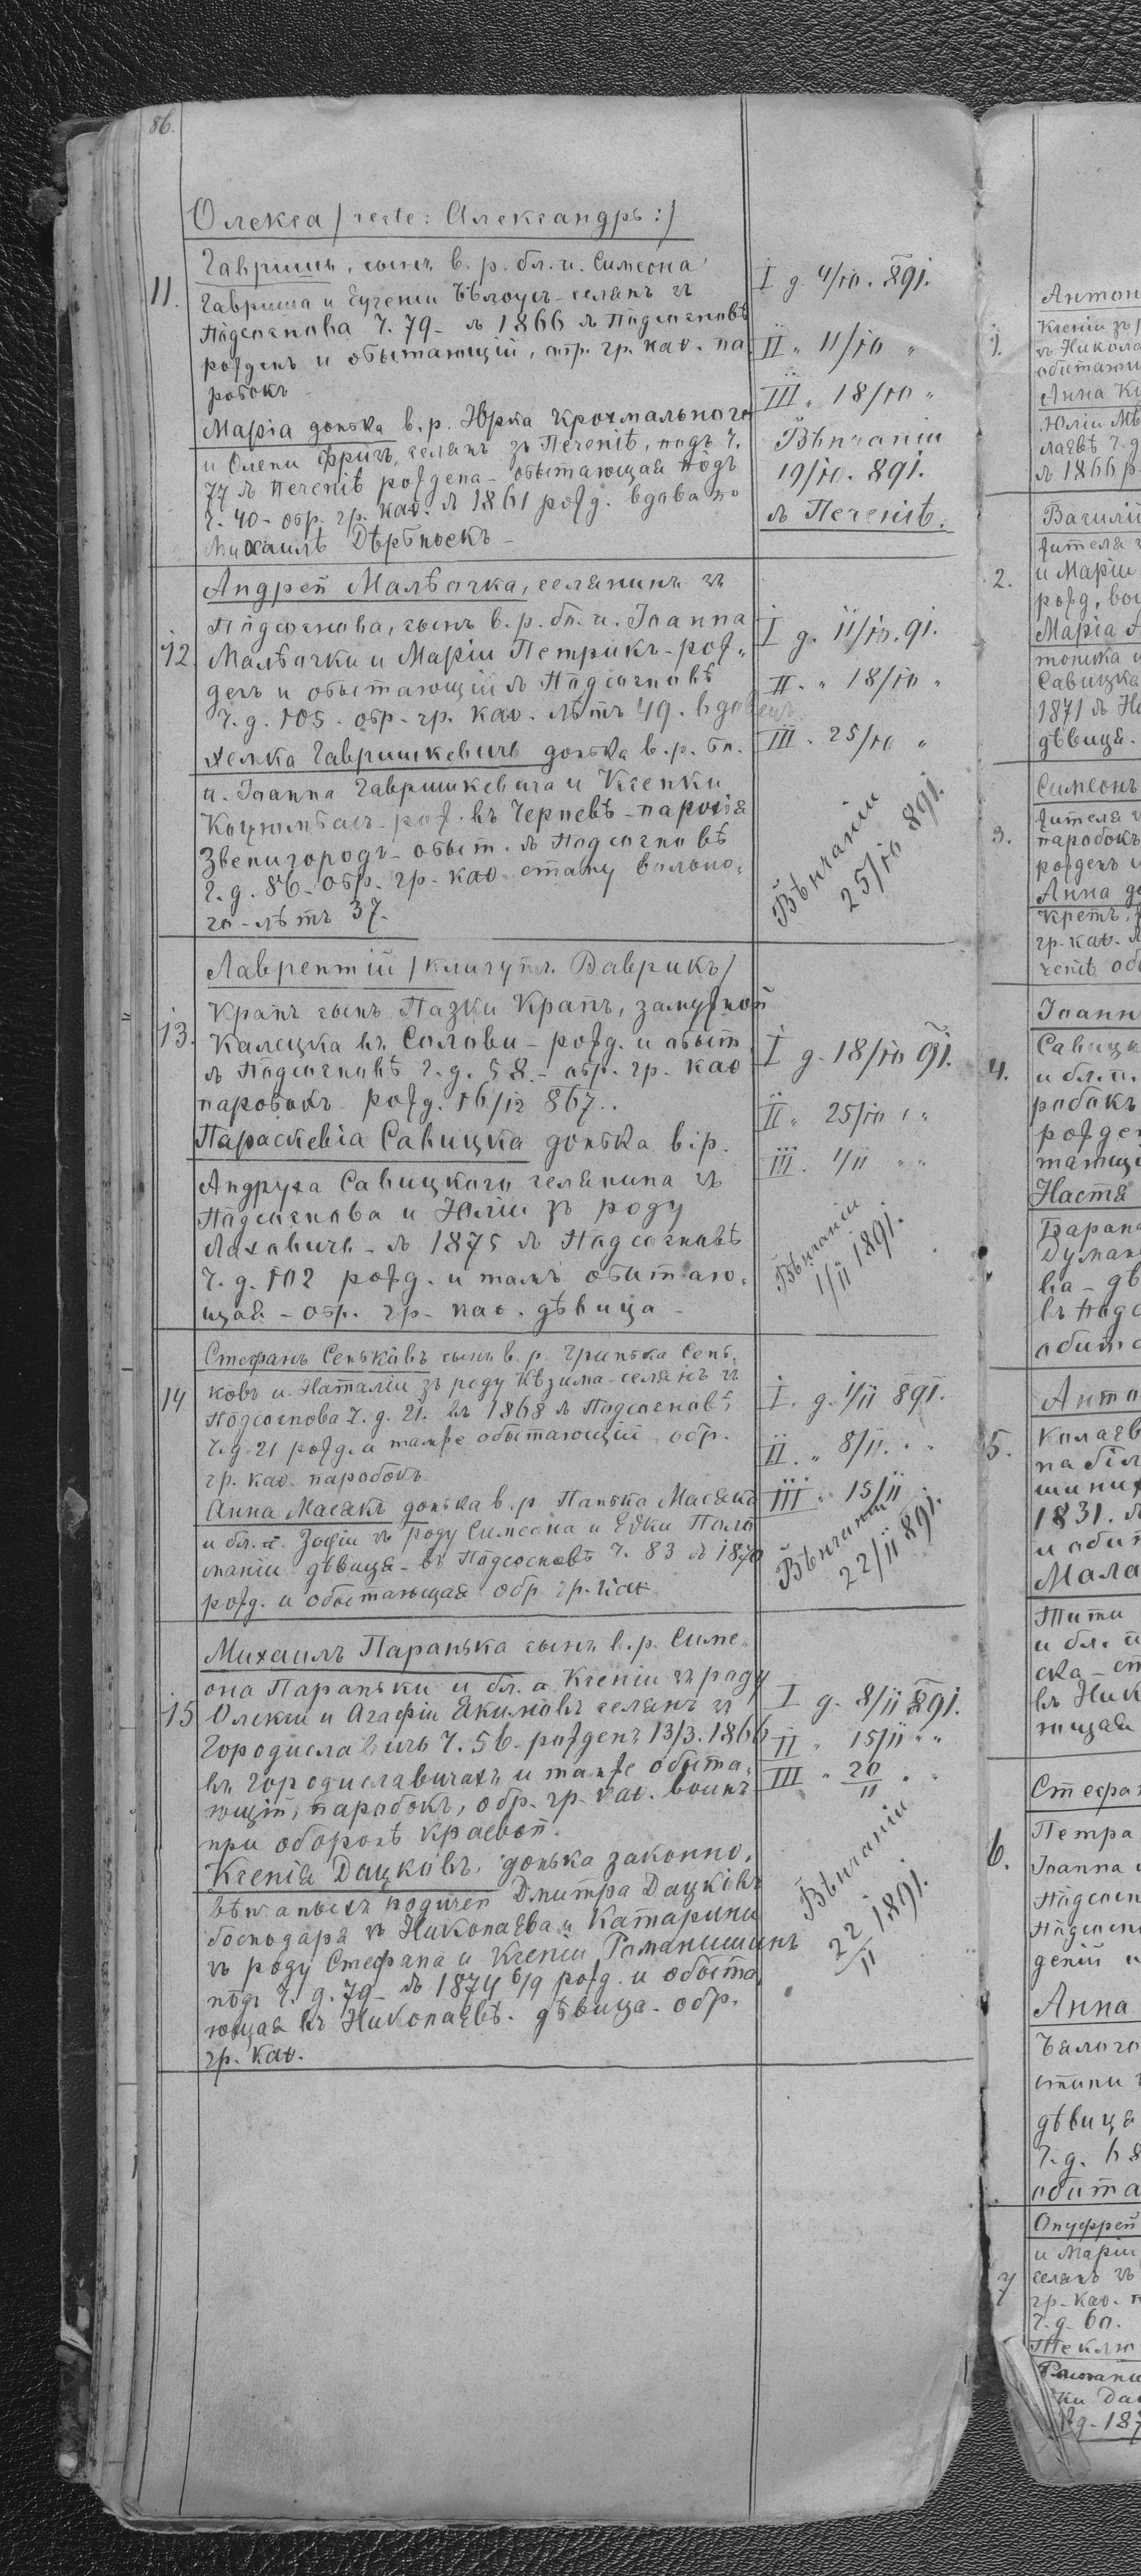 86.
Олекса / recte: Александръ :/
11.
Гавришъ, сынъ в. р. бл. п. Симеона
Гавриша и Евгеніи Бѣлоусъ - селянъ зъ
Пôдсоснова Ч. 79 - въ 1866 въ Пôдсосновѣ
рожденъ и обытающій, обр. гр. каѳ. па
робокъ -
Марія донька в. р. Юрка Крохмального
и Олены Фрить, селянъ зъ Печеніѣ, подъ ч.
77 въ Печеніѣ рождена - обытающая пôдъ
ч. 40 - обр. гр. каѳ. въ 1861 рожд. вдова по
Михаилѣ
I д. 4/10. 891.
II " 11/10 "
III " 18/10 "
Вѣнчаніи
19/10. 891.
въ Печеніѣ.
12
Андрей Малѣочка, селянинъ зъ
Пôдсоснова, сынъ в. р. бл. п. Іоанна
Малѣочки и Маріи Петрикъ - рож-
денъ и обытающій въ Пôдсосновѣ
ч. д. 105 - обр. гр. каѳ. лѣтъ 49. вдовецъ
Хемка Гавришкевичъ донька в. р. бл.
п. Іоанна Гавришкевича и Ксеньки
рож. въ Черневѣ - парохія
Звенигородъ - обыт. въ Пôдсосновѣ
ч. д. 86 - обр. гр. каѳ. стану вольно-
го - лѣтъ 37.
I д. 11/10. 91.
II. " 18/10 "
III. 25/10 "
Вѣнчаніи
25/10 891.
13.
Лаврентій / кличутъ Ваврикъ /
Крапъ сынъ Пазки Крапъ, замужной
Калецка въ Солови - рожд. и обыт
въ Пôдсосновѣ ч. д. 58 - обр. гр. каѳ
паробокъ рожд. 16/12 867.
Параскевіа Савицка донька в. р.
Андруха Савицкого селянина зъ
Пôдсоснова и Юліи зъ роду
Лаховичъ - въ 1875 въ Пôдсосновѣ
ч. д. 102 рожд. и тамъ обытаю-
щая - обр. гр. каѳ. дѣвица -
I д. 18/10 91.
II " 25/10 " "
III. 1/11 " "
Вѣнчаніи
1/11 1891.
14
Стефанъ Сеньковъ сынъ в. р. Гринька Сень-
ковъ и Наталіи зъ роду Кѣзима - селянъ зъ
Пôдсоснова ч. д. 21. въ 1868 въ Пôдсосновѣ
ч. д. 21 рожд. и тамже обытающій обр.
гр. каѳ. паробокъ
Анна Масякъ донька в. р. Панька Масяка
и бл. п. Зофіи зъ роду Симеона и Евки
дѣвиця - въ Пôдсосновѣ ч. 83 въ 1870
рожд. и обытающая обр гр. каѳ
I. д. 1/11 891.
II. " 8/11. "
III " 15/11
Вѣнчаніи
22/11 891.
15
Михаилъ Паранька сынъ в. р. Симе-
она Параньки и бл. п. Ксеніи зъ роду
Олексы и Агафіи Якимовъ селянъ зъ
Городиславичъ ч. 56 - рожденъ 13/3. 1866
въ Городиславичахъ и тамже обыта-
ющій, паробокъ, обр. гр. каѳ. воинъ
при оборонѣ краевôй.
Ксенія Дацковъ, донька законно-
вѣнчаныхъ родичей Дмитра Дацковъ
господаря зъ Николаева и Катарины
зъ роду Стефана и Ксеніи Романишинъ
пôдъ ч. д. 79 - въ 1874 6/9 рожд. и обыта
ющая въ Николаевѣ - дѣвица - обр.
гр. каѳ.
I д. 8/11 891.
II " 15/11 " "
III " 20/11 "
Вѣнчаніи
22/11 1891.
1.
Антон
Ксеніи зъ
въ Никола
обитающ
Анна К
Юліи
лаевѣ ч. д
въ 1866 р
2.
Василій
жителя
и Маріи
рожд,
Марія
Савицка
1871 въ Н
дѣвиця -
3.
Симеонъ
жителя
паробокъ
рожденъ
Анна до
Кретъ,
гр. каѳ.
4.
Іоанн
Савиц
и бл. п.
робокъ
рожден
Настя
Баран
Думан
ва - дѣ
въ Пôдс
обит
5.
Анто
Колаев
1831. въ
и обит
Мала
Тити
и бл. п
ска -
въ Ник
ющая
6.
Стефан
Петра
Іоанна
Пôдсосн
Анна
дѣвиця
ч. д.
обита
7
Онуфрей
и Маріи
селянъ зъ
гр. каѳ. п
ч. д. 60.
Теклю
Романи